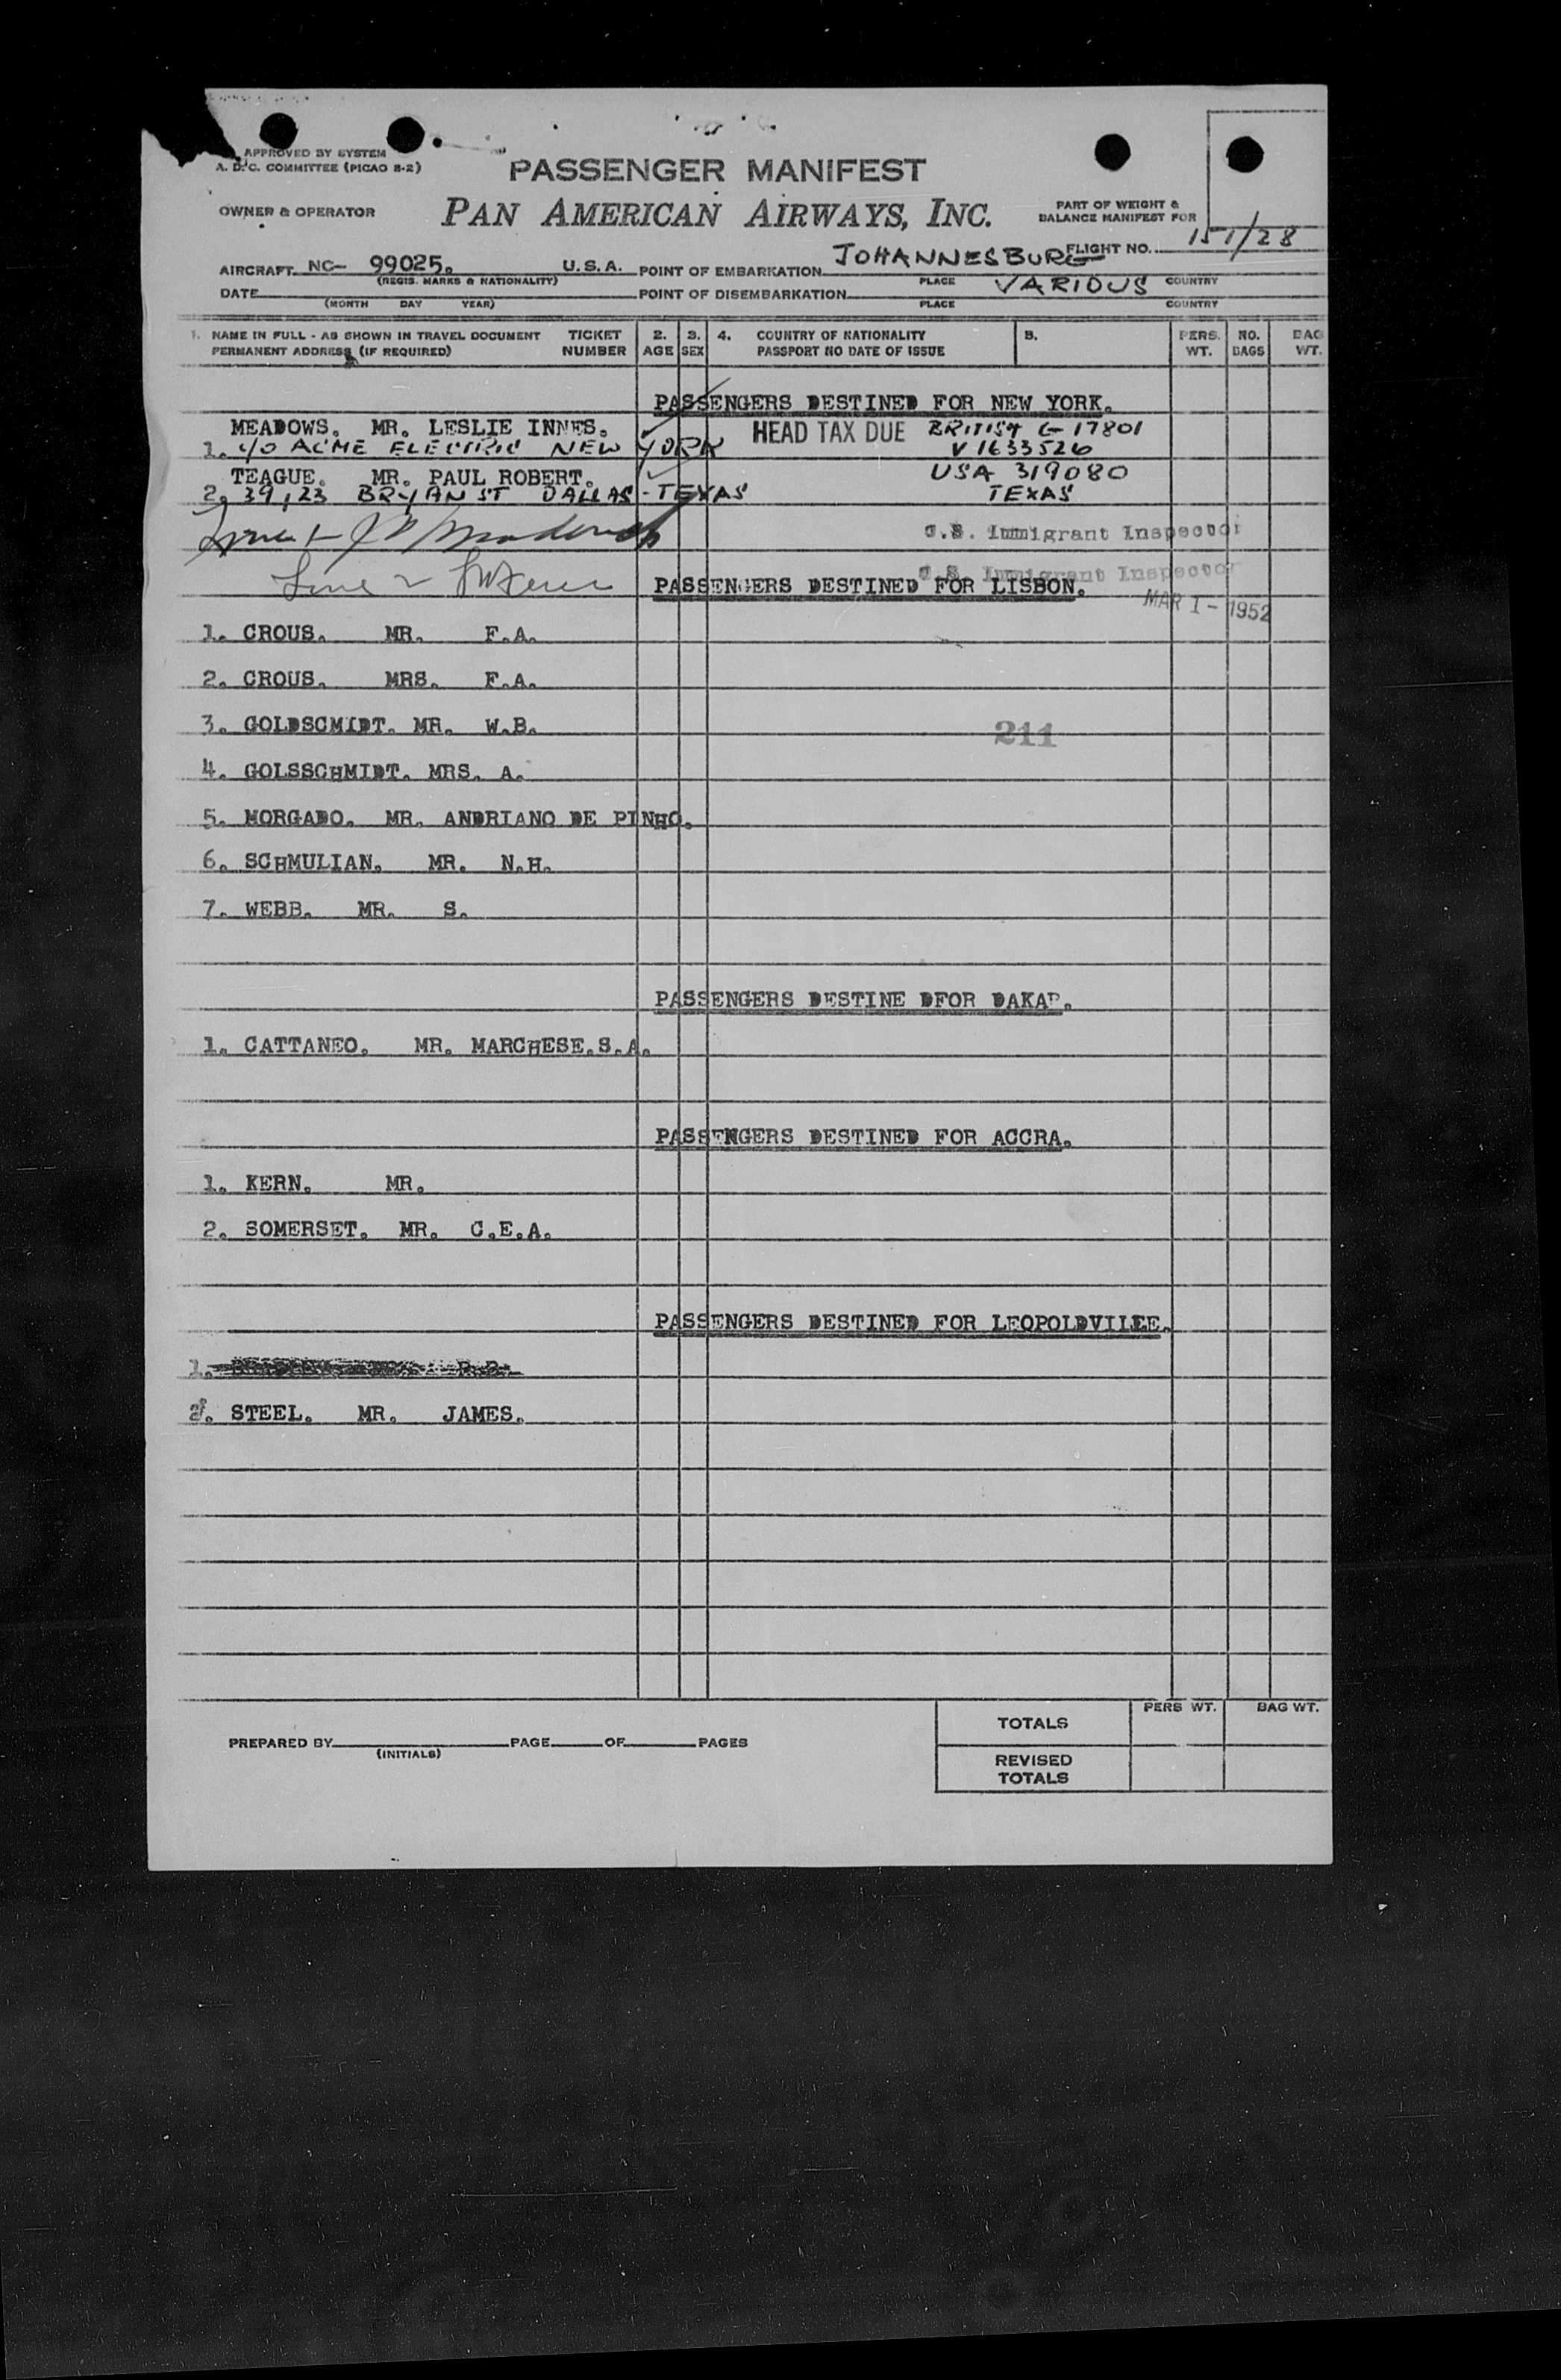 APPROVED BY SYSTEM
A. D. C. COMMITTEE (PICAO 8-2)
PASSENGER MANIFEST
OWNER & OPERATOR
PAN AMERICAN AIRWAYS, INC.
PART OF WEIGHT &
BALANCE MANIFEST FOR
FLIGHT NO. 151/28
AIRCRAFT NC- 99025. U.S.A. POINT OF EMBARKATION JOHANNESBURG
(REGIS. MARKS & NATIONALITY) PLACE COUNTRY
DATE POINT OF DISEMBARKATION VARIOUS
(MONTH DAY YEAR) PLACE COUNTRY
1. NAME IN FULL - AS SHOWN IN TRAVEL DOCUMENT TICKET 2. 3. 4. COUNTRY OF NATIONALITY 5. PERS. NO. BAG
PERMANENT ADDRESS (IF REQUIRED) NUMBER AGE SEX PASSPORT NO DATE OF ISSUE WT. BAGS WT.
PASSENGERS DESTINED FOR NEW YORK.
MEADOWS. MR. LESLIE INNES. HEAD TAX DUE BRITISH G-17801
1. C/O ACME ELECTRIC NEW YORK V 1633526
TEAGUE. MR. PAUL ROBERT. USA 319080
2. 39,23 BRYAN ST DALLAS - TEXAS TEXAS
U.S. Immigrant Inspector
U.S. Immigrant Inspector
PASSENGERS DESTINED FOR LISBON.
MAR 1 - 1952
1. CROUS. MR. F.A.
2. CROUS. MRS. F.A.
3. GOLDSCMIDT. MR. W.B.
211
4. GOLSSCHMIDT. MRS. A.
5. MORGADO. MR. ANDRIANO DE PINHO.
6. SCHMULIAN. MR. N.H.
7. WEBB. MR. S.
PASSENGERS DESTINE DFOR DAKAR.
1. CATTANEO. MR. MARCHESE.S.A.
PASSENGERS DESTINED FOR ACCRA.
1. KERN. MR.
2. SOMERSET. MR. C.E.A.
PASSENGERS DESTINED FOR LEOPOLDVILLE.
1.
2. STEEL. MR. JAMES.
TOTALS PERS WT. BAG WT.
PREPARED BY PAGE OF PAGES
(INITIALS)
REVISED
TOTALS